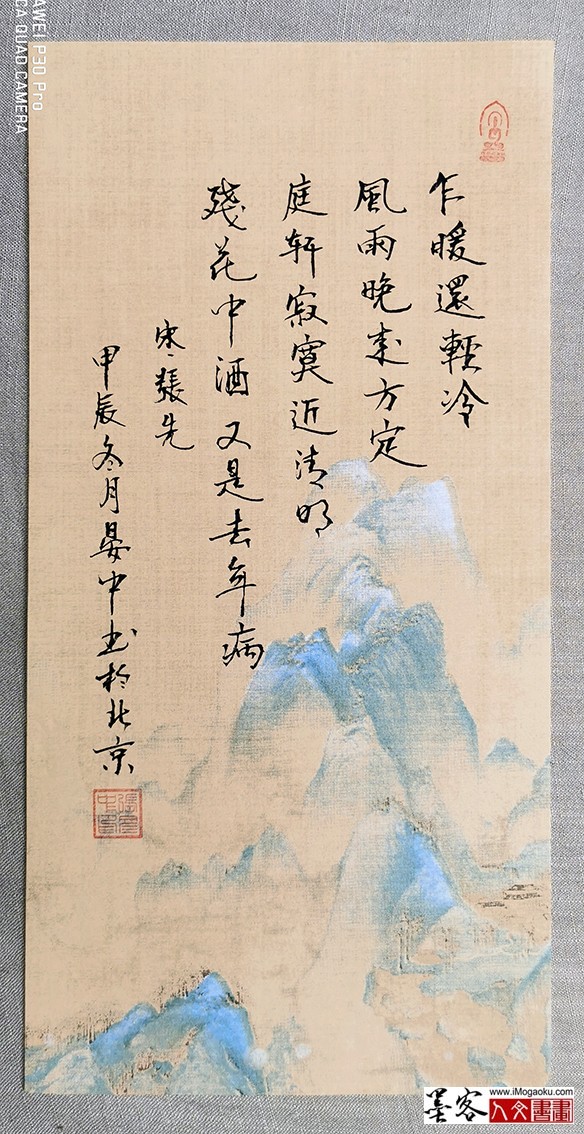 乍暖還輕冷
風雨晚來方定
庭軒寂寞近清明
殘花中酒又是去年病
宋張先
甲辰冬月晏中书於北京
HUAWEI P30 Pro
CA QUAD CAMERA
墨客
www.iMogaoku.com
人文書畫